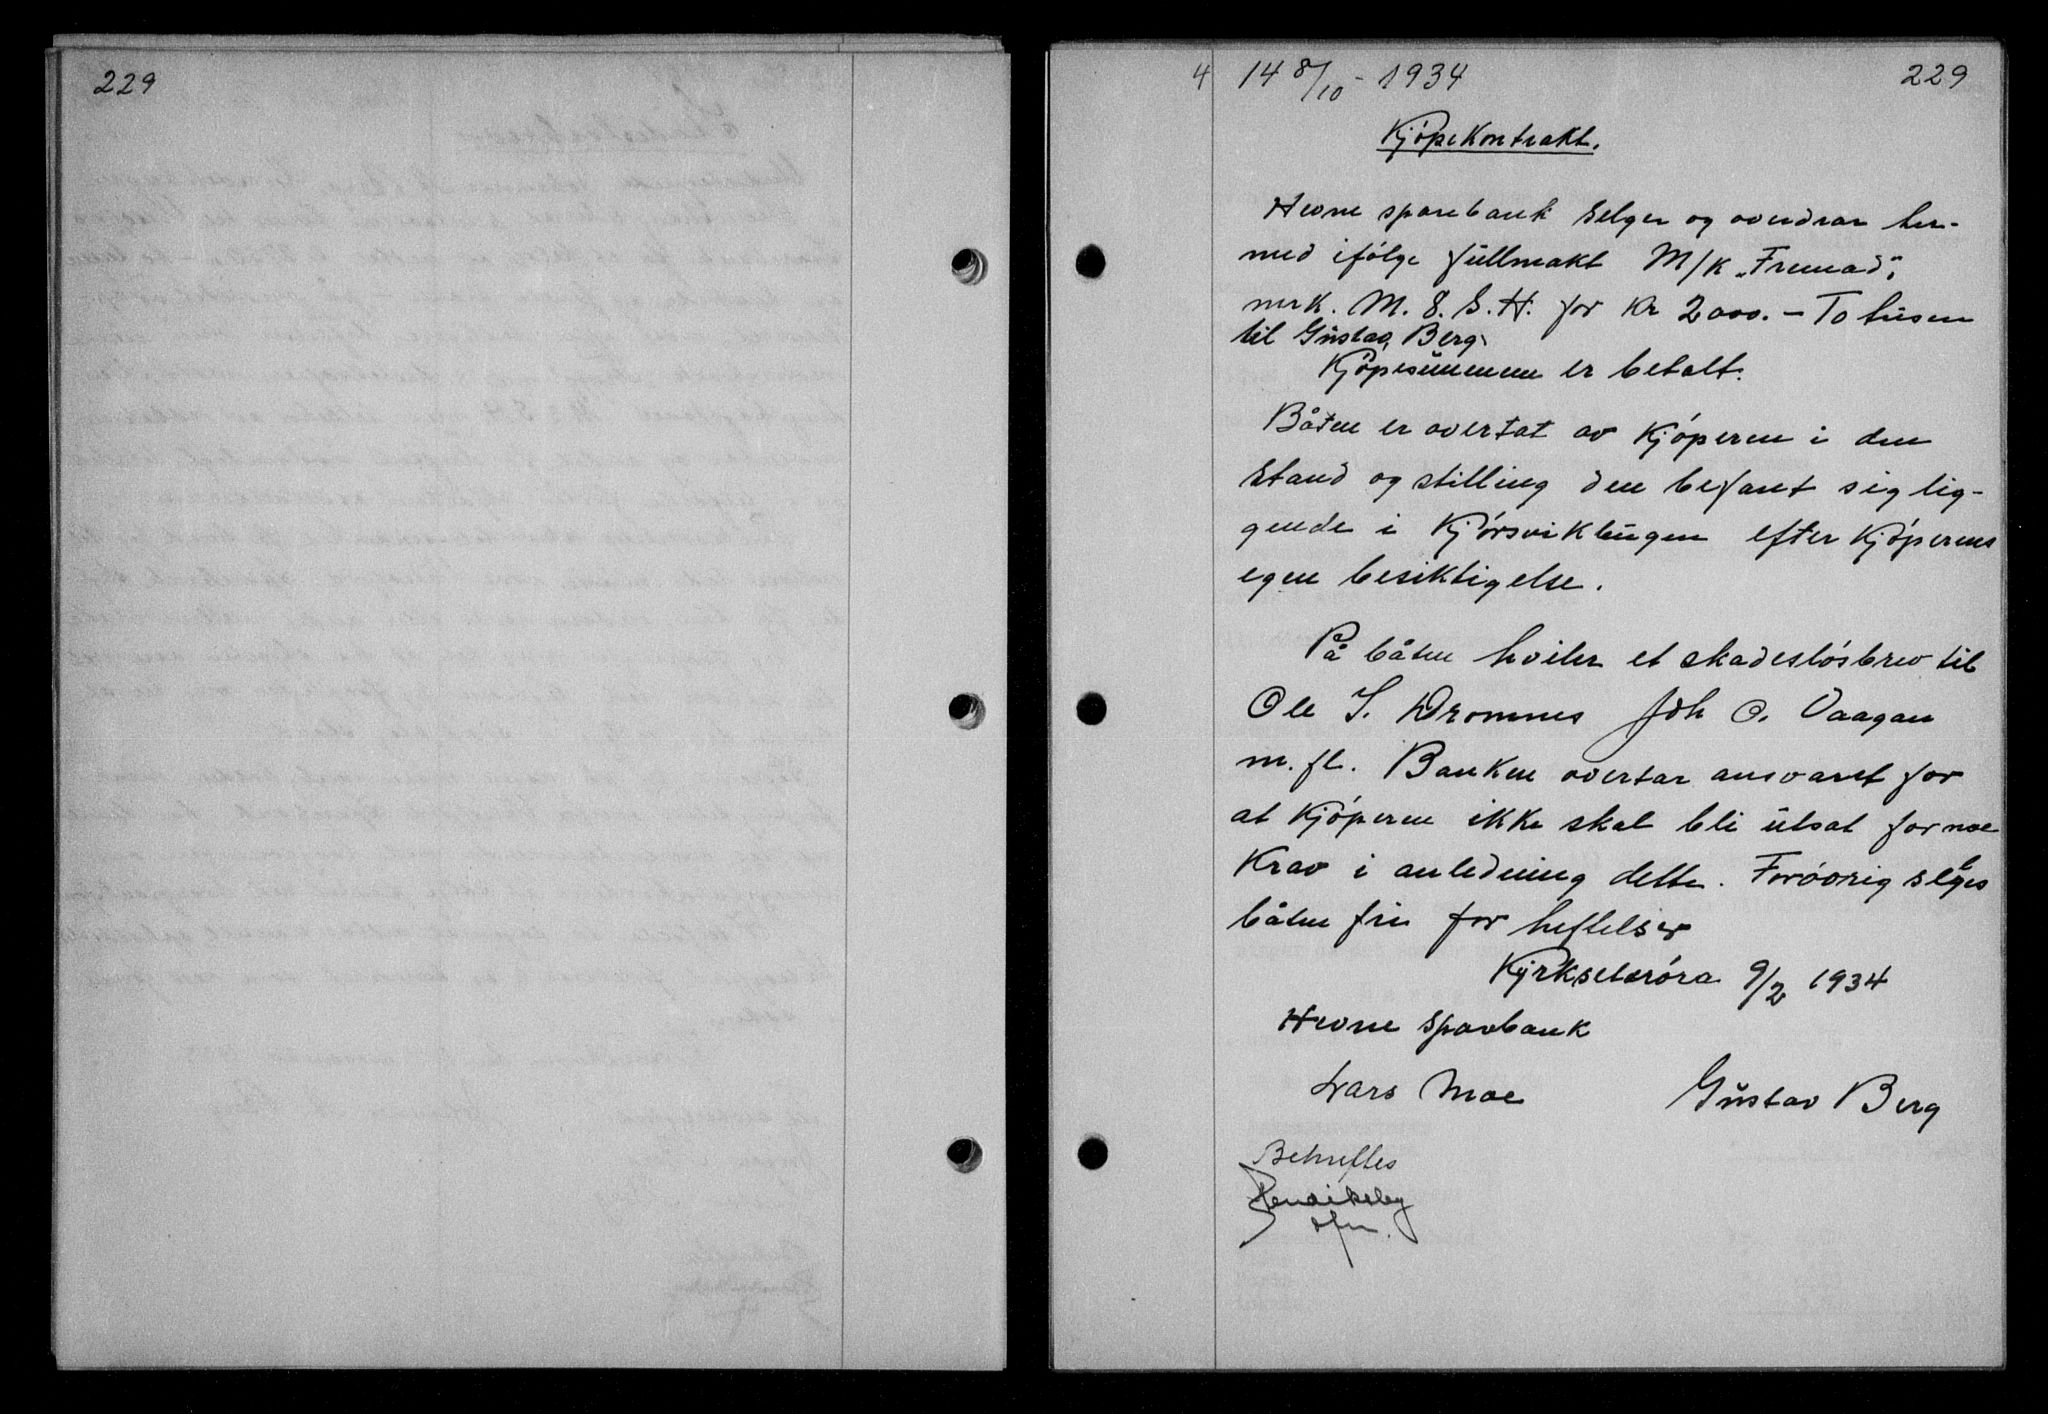 229
4 14 8/10 - 1934 229
Kjöpekontrakt.
Hevne sparebank selger og overdrar her-
med ifölge fullmakt M/K "Fremad",
merk. M. 8. S. H. for Kr 2000. - To tusen
til Gustav Berg.
Kjöpesummen er betalt.
Båten er overtat av Kjöperen i den
stand og stilling den befant sig lig-
gende i Kjörsvikbugen efter Kjöperens
egen besiktigelse.
På båten hviler et skadeslösbrev til
Ole I. Dromnes Joh O. Vaagan
m. fl. Banken overtar ansvaret for
at Kjöperen ikke skal bli utsat for noe
Krav i anledning dette. Foröorig selges
båten fri for heftelser
Kyrksæteröra 9/2 1934
Hevne Sparbank
Lars Moe Gustav Berg
Bekreftes